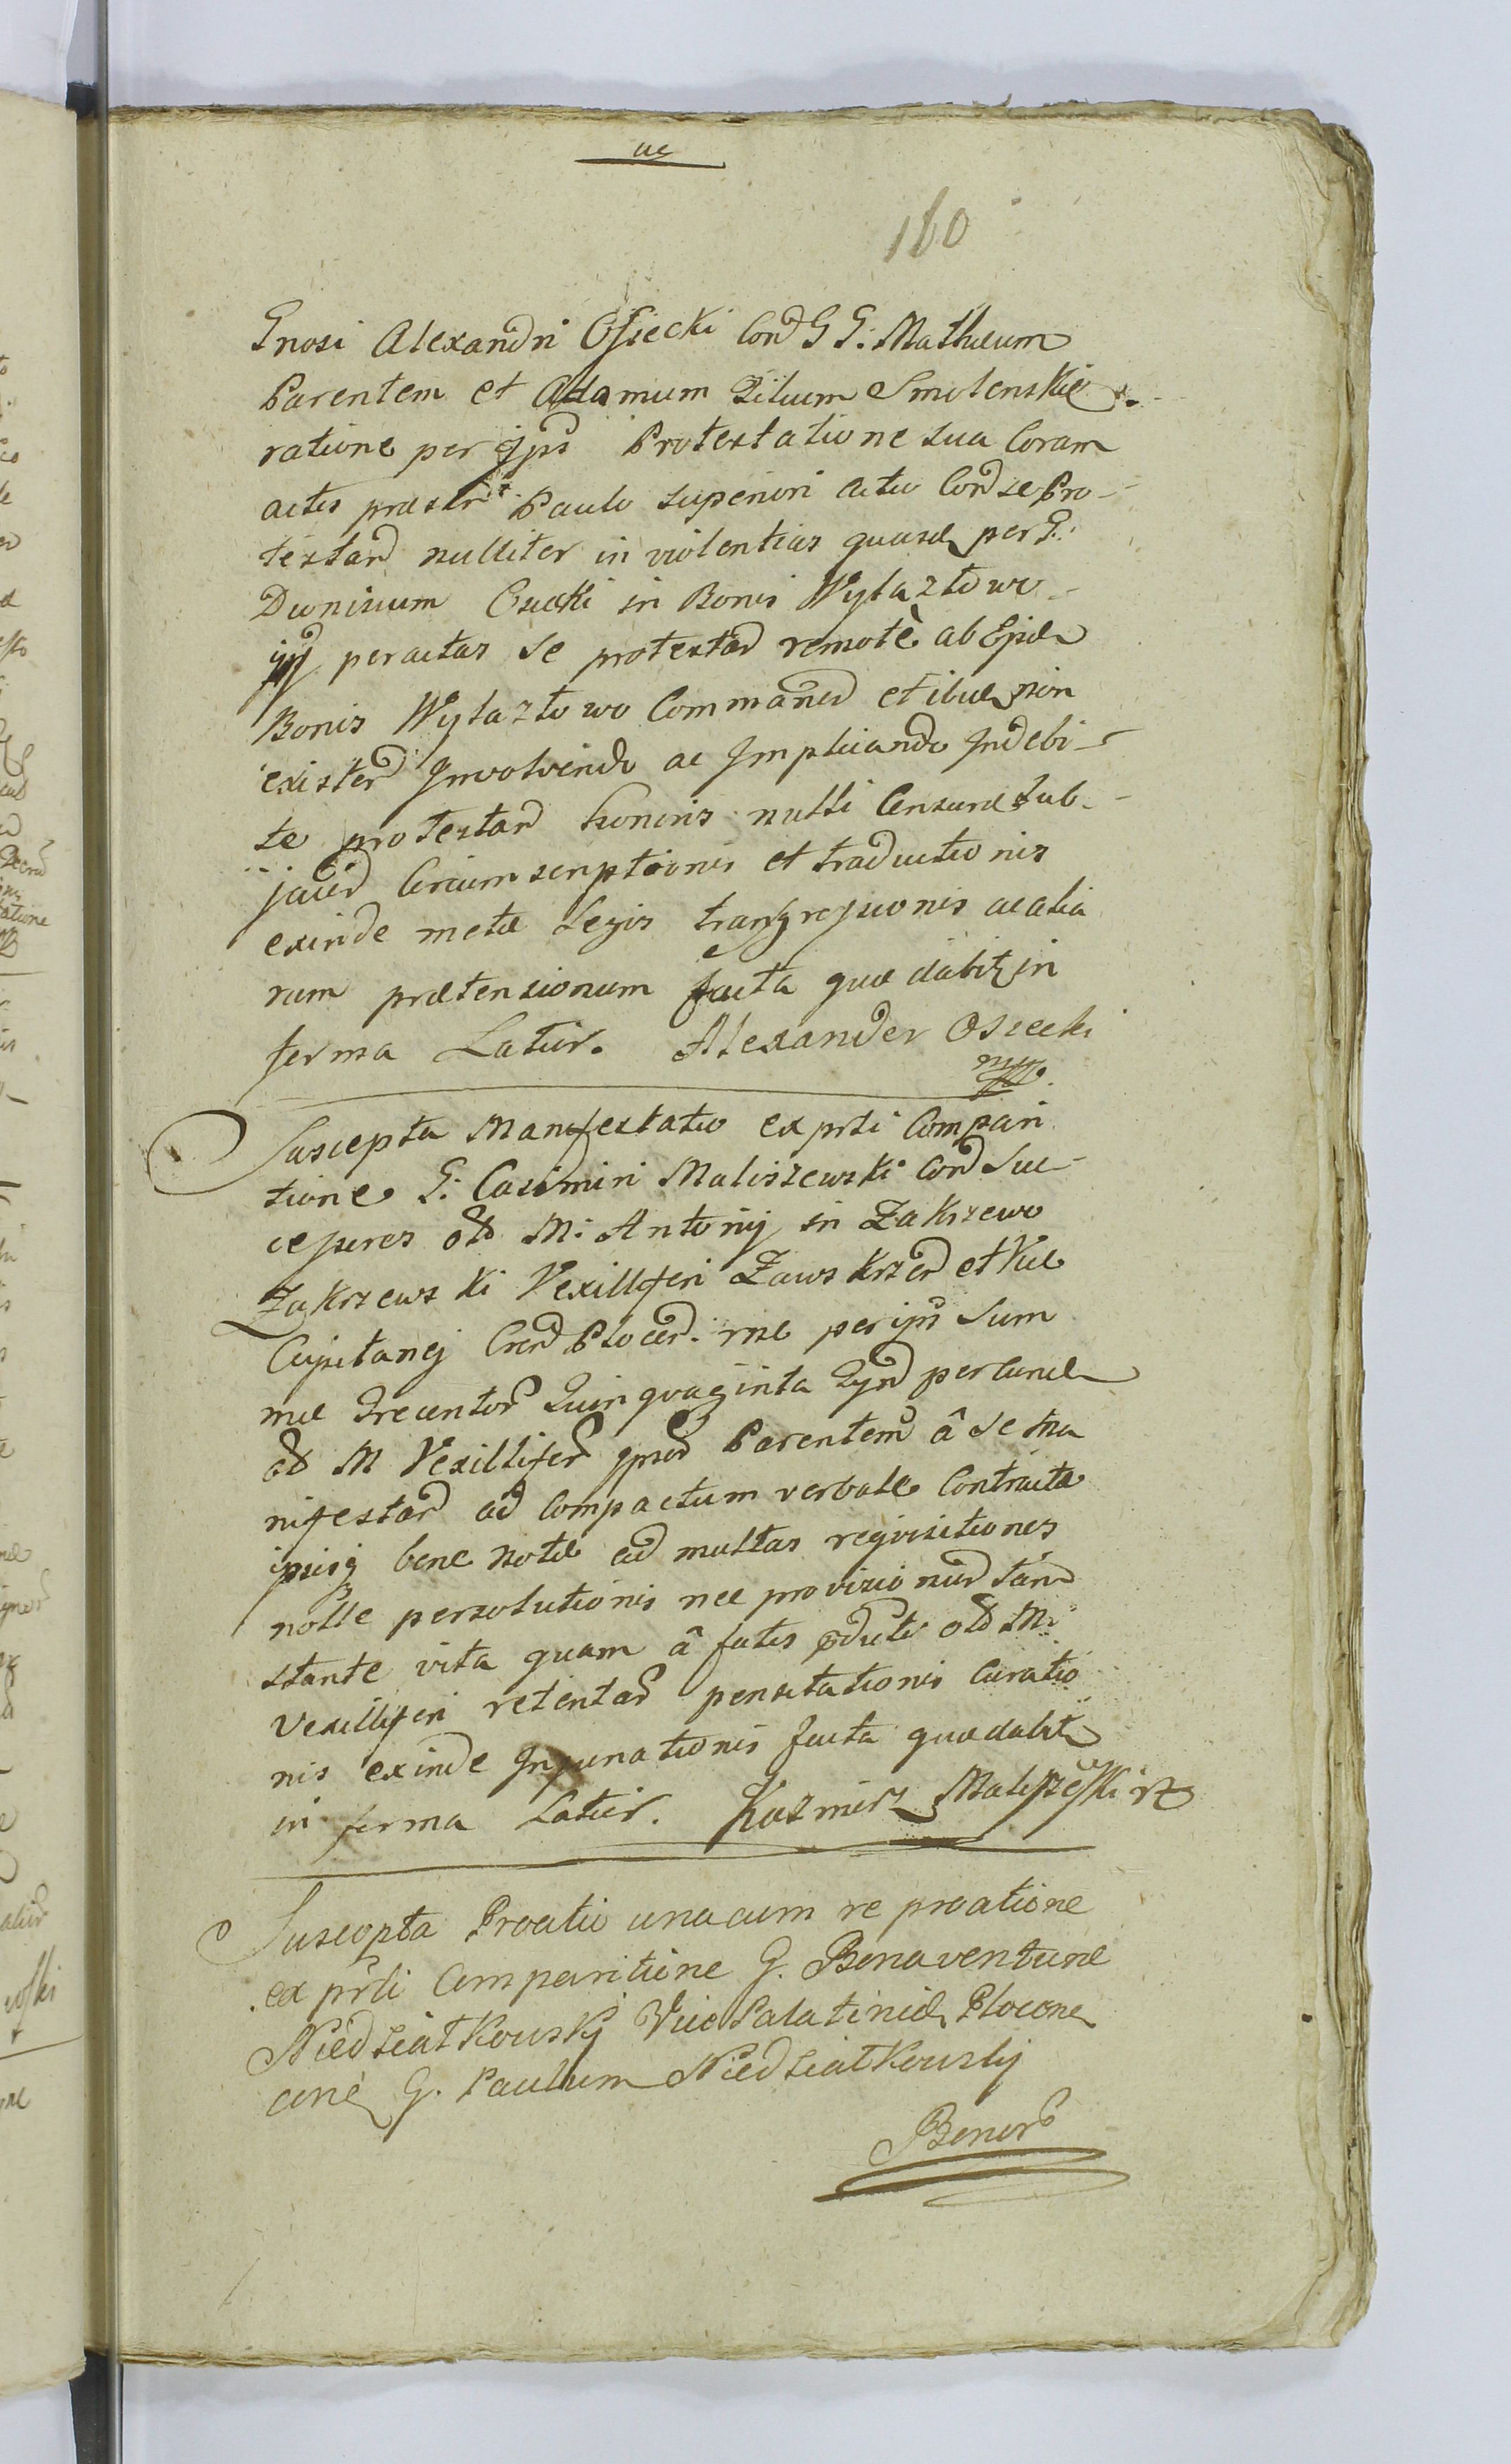 ac
160
Gnosi Alexandri Osiecki Cond G G: Mathaeum
Parentem et Adamum Filium Smolenskie
ratione per ipsos Protestatione sua Coram
actis praesent Paulo superiori actu Cond se Pro-
testand nulliter in violentias quasd per G:
Dionisium Osiecki in Bonis Wylaztowo
peractas se protestad remotè ab Ejsd
Bonis Wylaztowo Commaned et ibid non
existend Involvendo ac Implicando Indebi-
te protestand honoris nulli Censurae sub-
jaced Circumscriptionis et traductionis
exinde metae Legis transgressionis ac alia
rum praetensionum facta quae dabitz in
forma Latior. Alexander Osiecki
mp
Suscepta Manifestatio ex prti Compari
tione G: Casimiri Maliszewski Cond Suc-
cessores old M: Antonij in Zakrzewo
Zakrzewski Vexilliferi Zawskrzed et Vice
Capitanej Cend Plocend. rne per ipso Sum
mae Trecentor Quinquaginta per
old M Vexillifer Parentem â se Ma
nifestand ad Compactum verbale Contracta
ipsisq bene Notae ad multas reqvisitiones
nolle persolutionis nec provisionud tand
stante vita quam â fatis old M:
Vexilliferi retentad pensitationis Curatio
nis exinde facta quae dabitz
in forma Latior. Kazmirz Maliszewski
Suscepta Proatio unacum re proatione
ex prti Comparitione G. Bonaventurae
Niedziatkowskij Vice Palatinid Plocens
cone G. Paulum Niedziatkowskij
Bonor